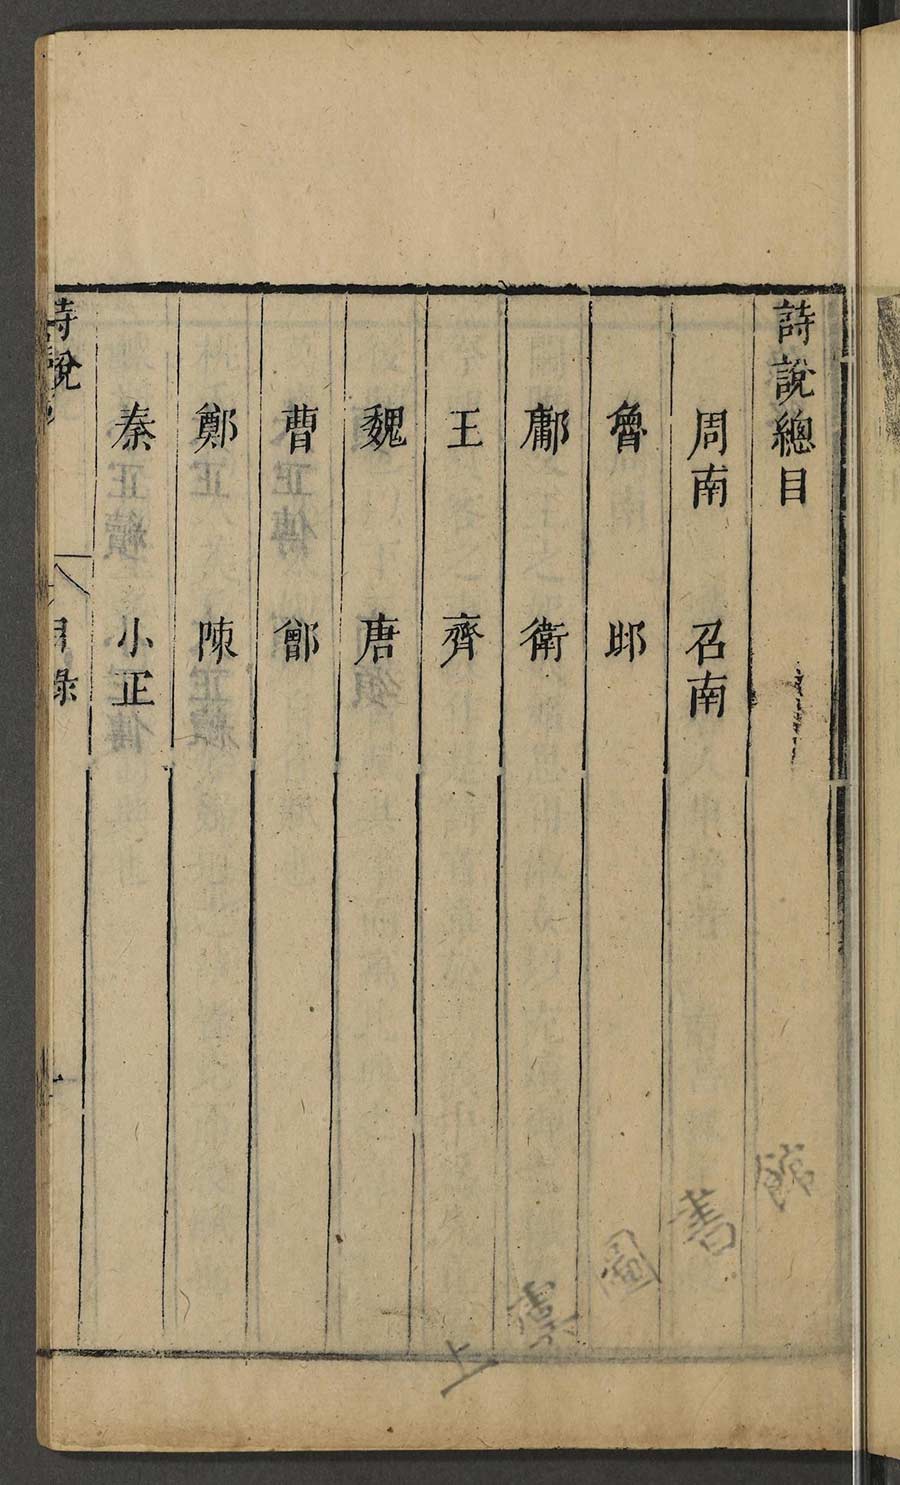 詩說總目
周南　召南
魯　邶
鄘　衛
王　齊
魏　唐
曹　鄶
鄭　陳
秦　小正
詩說
目錄
一
上虞圖書館